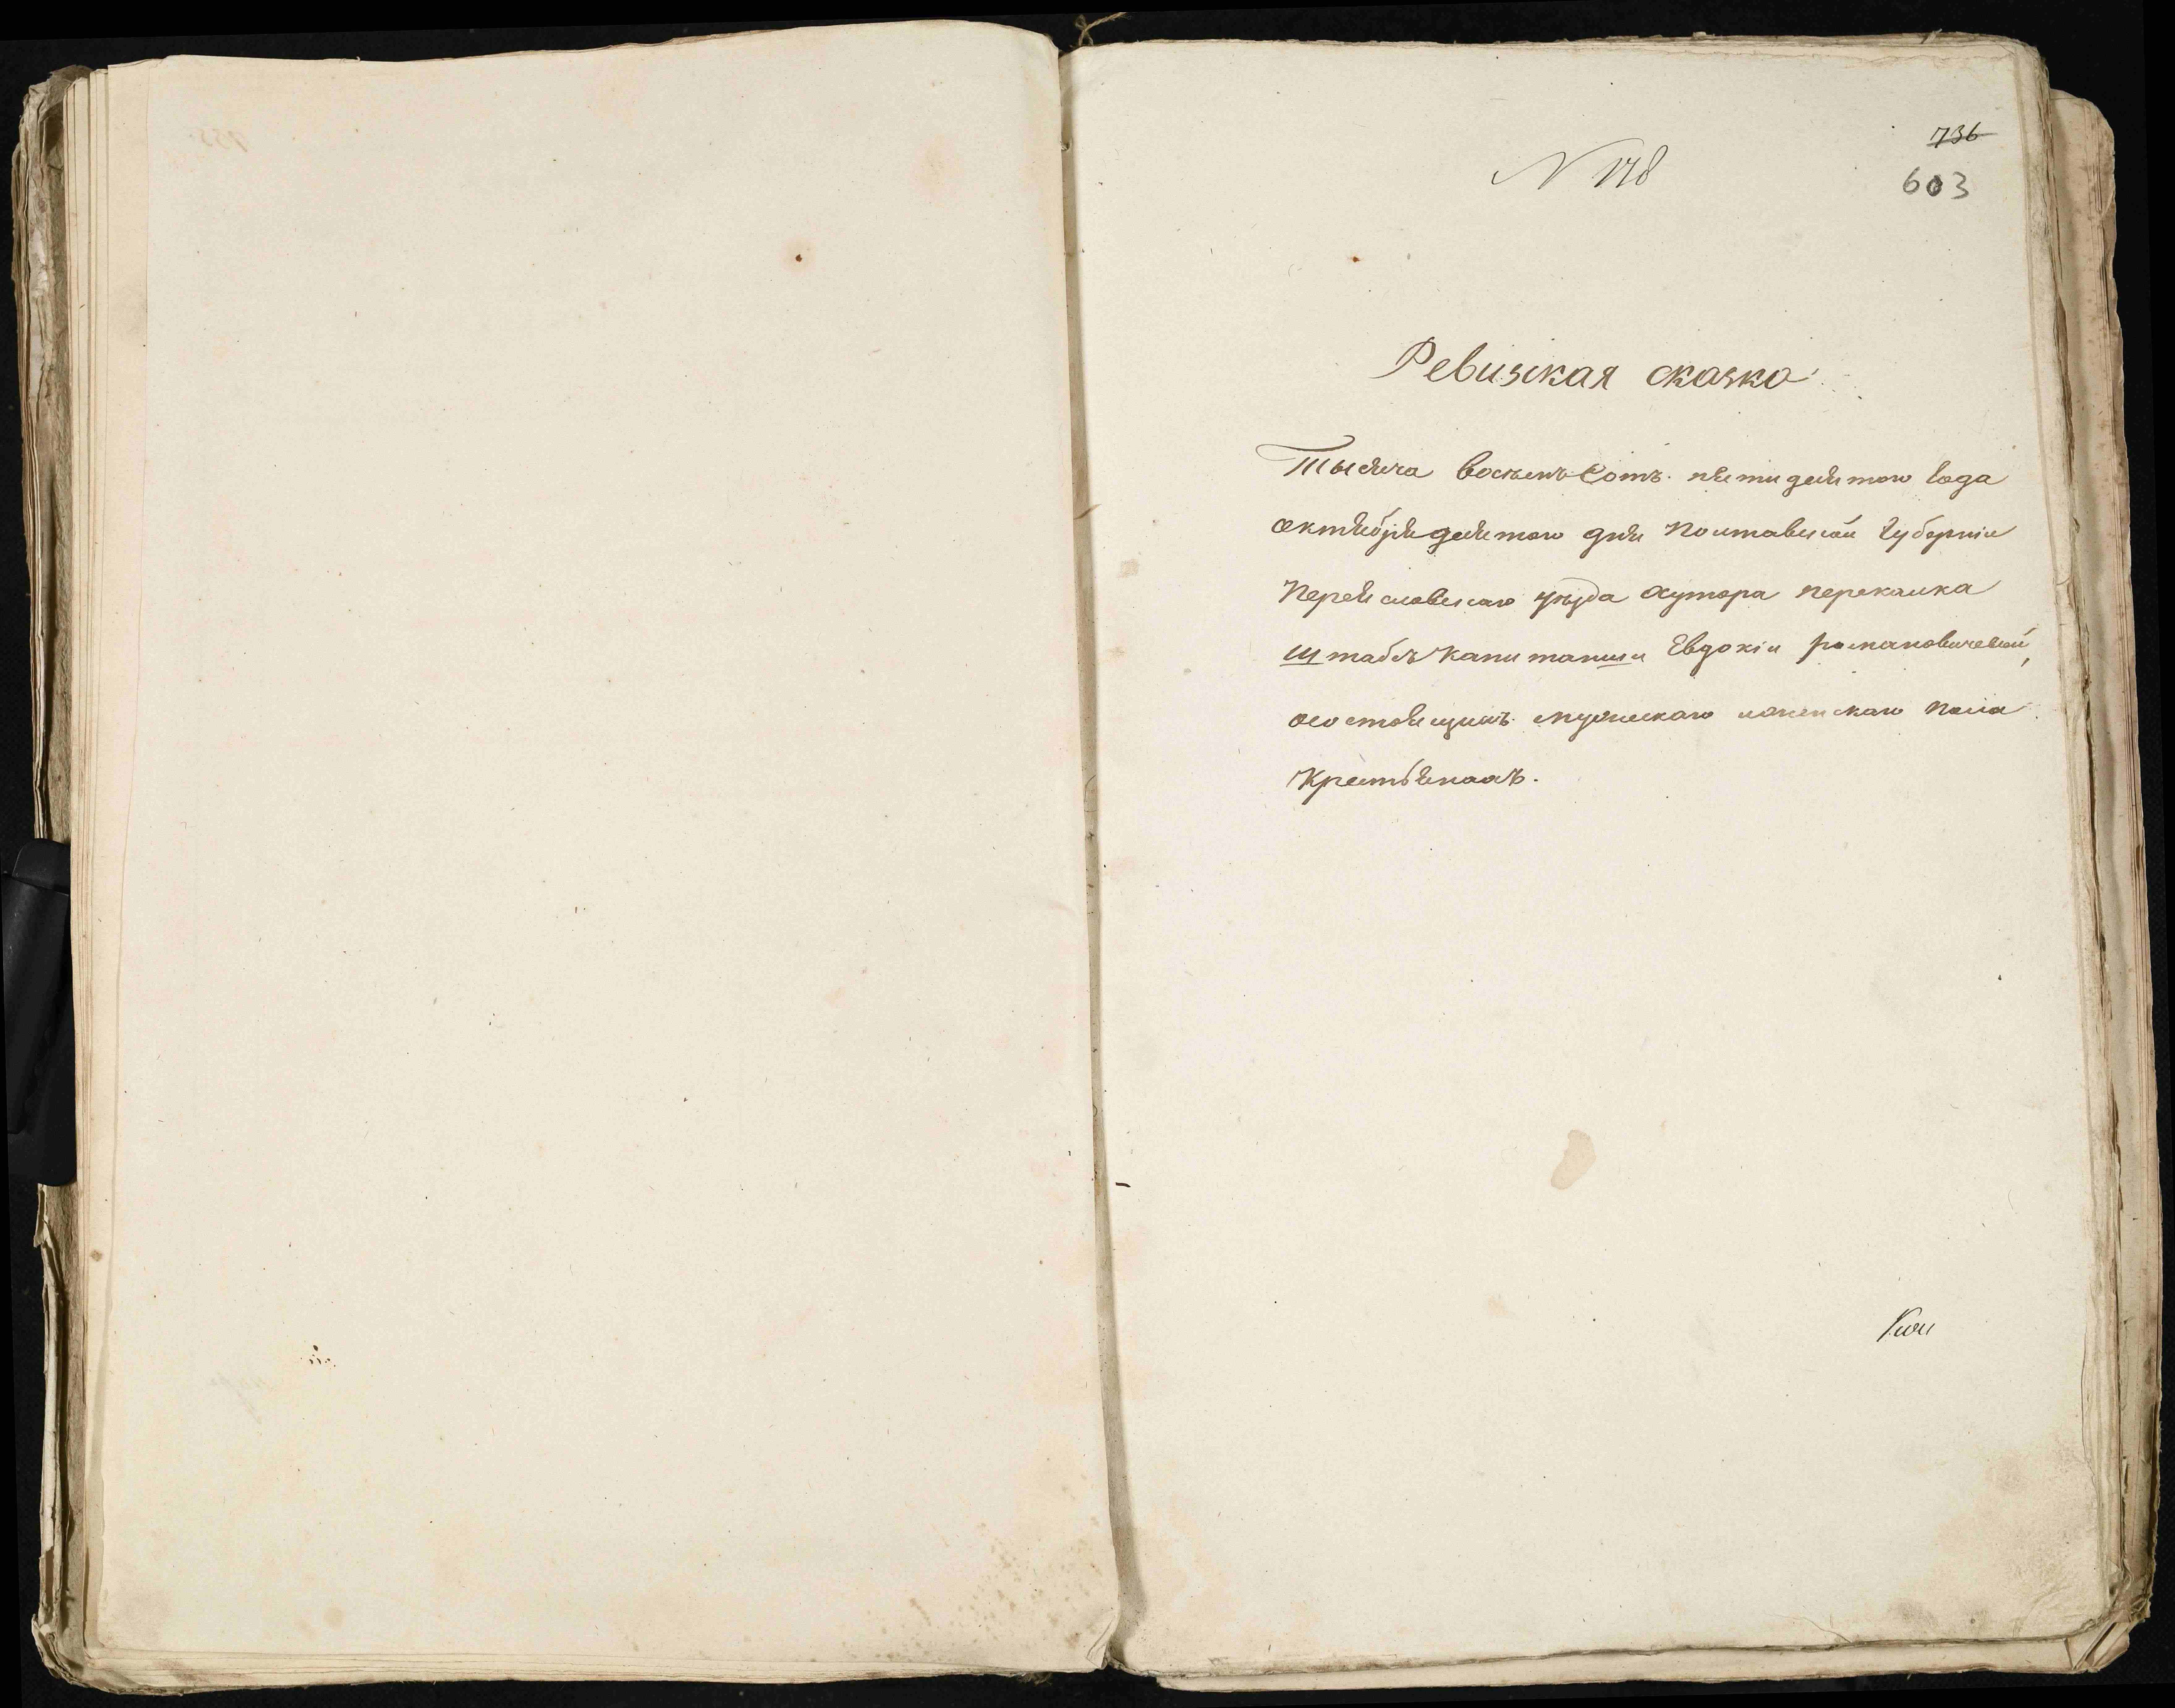 736
N 178
603
Ревизская сказка
Тысяча восемь Сотъ пятидесятого года
октября десятого дня Полтавской Губерніи
Переяславскаго уезда Хутора перекалка
штабсъ капитанши Евдокіи романовичевой,
о состоящихъ мужескаго и женскаго пола
Крестьянахъ.